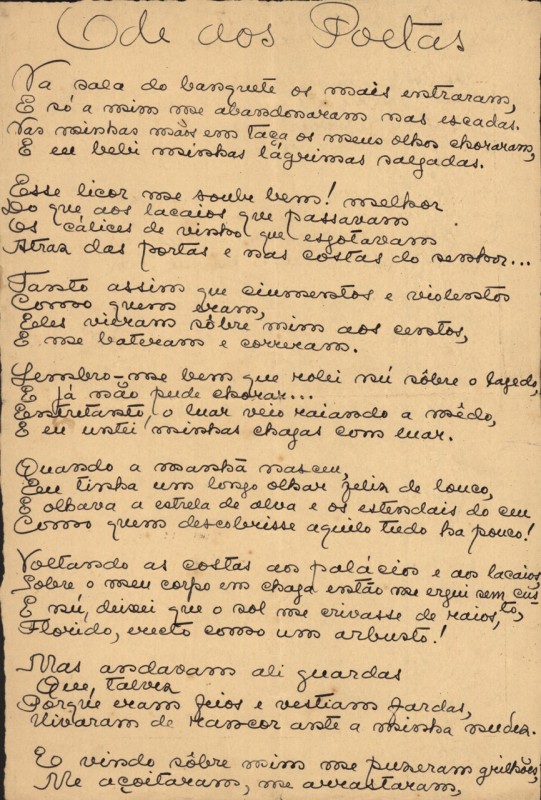 Ode aos Poetas
Na sala do banquete os mais entraram,
E só a mim me abandonaram nas escadas.
Nas minhas mãos em taça os meus olhos choraram,
E eu bebi minhas lágrimas salgadas.
Esse licor me soube bem! melhor
Do que aos lacaios que passavam
Os cálices de vinho que esgotavam
Atraz das portas e nas costas do senhor...
Tanto assim que ciumentos e violentos
Como quem eram,
Eles vieram sôbre mim aos centos,
E me bateram e correram.
Lembro-me bem que rolei nú sôbre o lagedo,
E já não pude chorar...
Entretanto, o luar veio raiando a mêdo,
E eu untei minhas chagas com luar.
Quando a manhã nasceu,
Eu tinha um longo olhar feliz de louco,
E olhava a estrela de alva e os estendais do ceu
Como quem descobrisse aquilo tudo ha pouco!
Voltando as costas aos palácios e aos lacaios,
Sobre o meu corpo em chaga então me ergui sem cus-
to,
E nú, deixei que o sol me crivasse de raios,
Florido, erecto como um arbusto!
Mas andavam ali guardas
Que, talvez
Porque eram feios e vestiam fardas,
Uivaram de rancor ante a minha nudez.
E vindo sôbre mim me puzeram grilhões,
Me açoitaram, me arrastaram,